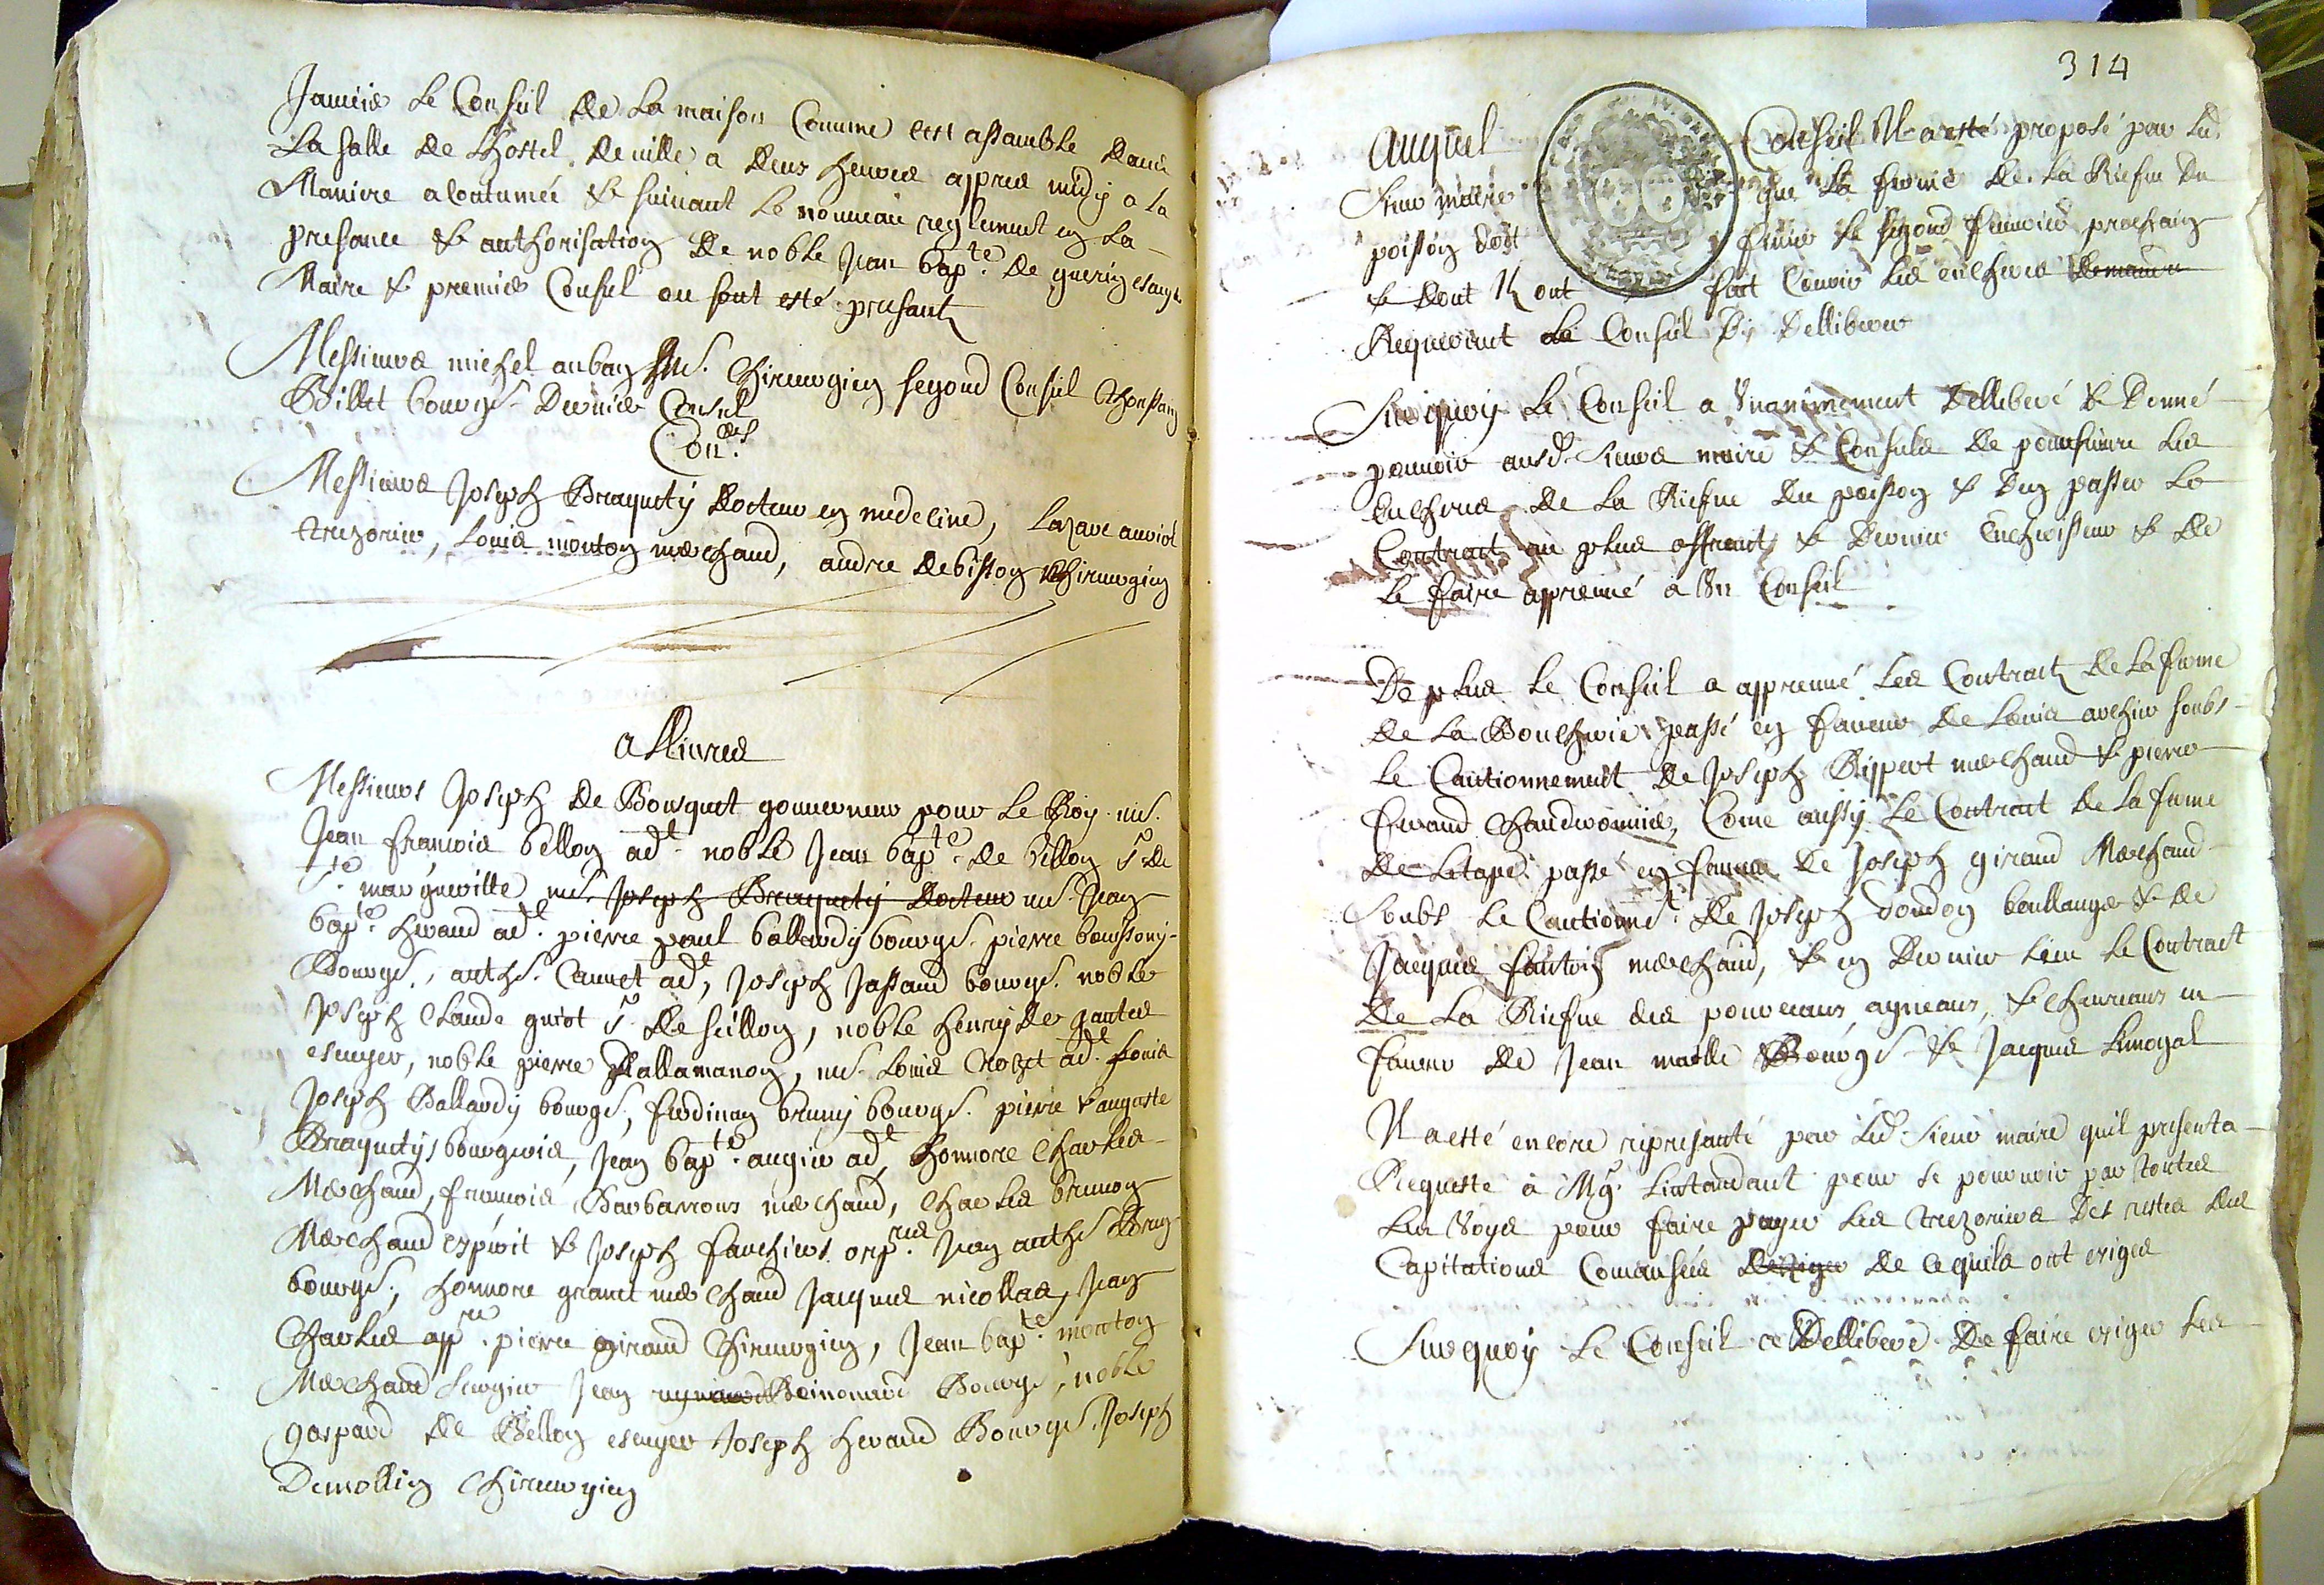 Janvier Le Conseil de La maison Commune cest assamble dans
La salle de Lhostel de ville a deus heures appres midy a la
Maniere acoutumée & suivant Le nouveau reglement en La
presance & authorisation de noble Jean bapte. de guerin escuyer
Maire & premier Consul ou sont esté presants
Messieurs michel auban chirurgien segond Consul
Billet bourgs. dernier Consul
Coners.
Messieurs Joseph Braquety docteur en medecine, Lazare auriol
trezorier, Louis mouton marchand, andre debisson chirurgien
allivres
Messieurs Joseph de Bousquet gouverneur pour Le Roy me.
Jean francois bellon adt. noble Jean bapte. de bellon sr de
ste. margueritte me. Joseph Braquety docteur me. Jean
bapte. heraud adt. pierre paul ballardy bourgs. pierre boussony
Bourgs., anthe. Cannet adt, Joseph Jassaud bourgs. noble
Joseph Claude guiot sr de seillon, noble henry de gantes
escuyer, noble pierre dallamanon, me. Louis Crozet adt. Louis
Joseph Ballardy bourgs., ferdinan bruny bourgs. pierre & auguste
Braquetys bourgeois, Jean bapte. augier adt, honnore Charles
Marchand, francois Barbarrous marchand, Charles brunon
Marchand espirit & Joseph fauchiers Jean anthe Brun
bourgs., honnore granet marchand Jacques nicollas, Jean
Charles appre. pierre giraud chirurgien, Jean bapte. mouton
Marchand Jean Reimonard Bourgs, noble
gaspard de Bellon escuyer Joseph heraud Bourgs. Joseph
Demollin chirurgien
314
Auquel Conseil Il a esté proposé par Led.
sieur maire que La ferme de La Riefve du
poisson doit finir Le segond fevrier prochain
& dont Ils ont fait Courir Les encheres
Requerant Le Conseil dy delliberer
Surquoy Le Conseil a Unanimement delliberé & donné
pouvoir ausd. sieurs maire & Consuls de poursuivre Les
encheres de La Riefve du poisson & den passer Le
Contract au plus offrant & dernier encherisseur & de
Le faire approuvé a Un Conseil
De plus Le Conseil a approuvé Les Contracts de La ferme
de La Boucherie passé en faveur de Louis archier soubs
Le Cautionnement de Joseph Rippert marchand & pierre
feraud Chaudronnier, Come aussy Le Contrat de La ferme
de Letape passé en faveur de Joseph giraud Marchand
Soubs Le Cautionnet. de Joseph doudon boullanger & de
Jacques marchand, & en dernier Lieu Le Contract
de La Riefve des pourceaus agneaus, & chevreaus en
faveur de Jean maille Bourgs. & Jacques Limogal
Il a esté encore representé par Led. sieur maire quil presenta
Requeste à Mgr. Lintandant pour se pourvoir par toutes
Les Voyes pour faire payer Les trezoriers des restes des
Capitations Comansées de ce quils ont exiges
Surquoy Le Conseil a delliberé De faire exiger Les